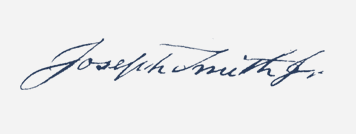 Joseph Smith Jr.